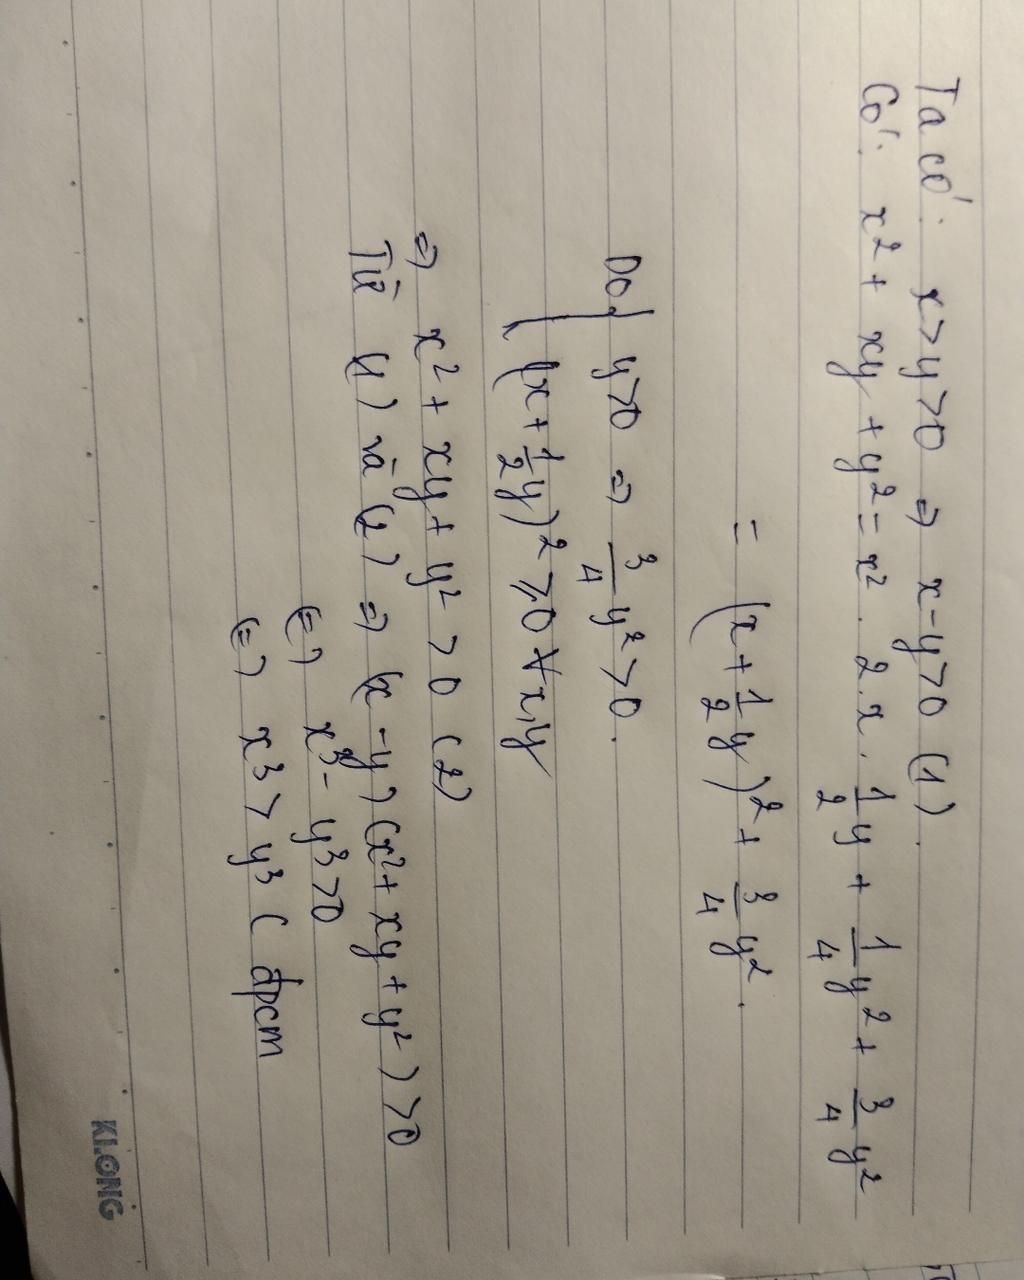 Ta có: x>y>0 => x-y>0 (1).
Có: x² + xy + y² = x² . 2.x.\frac{1}{2}y + \frac{1}{4}y² + \frac{3}{4}y²
= (x + \frac{1}{2}y)² + \frac{3}{4}y².
Do { y>0 => \frac{3}{4}y² >0.
(x + \frac{1}{2}y)² ≥ 0 ∀x,y
=> x² + xy + y² > 0 (2)
Từ (1) và (2) => (x - y)(x² + xy + y²) >0
(=) x³ - y³ >0
(=) x³ > y³ ( đpcm
KLONG